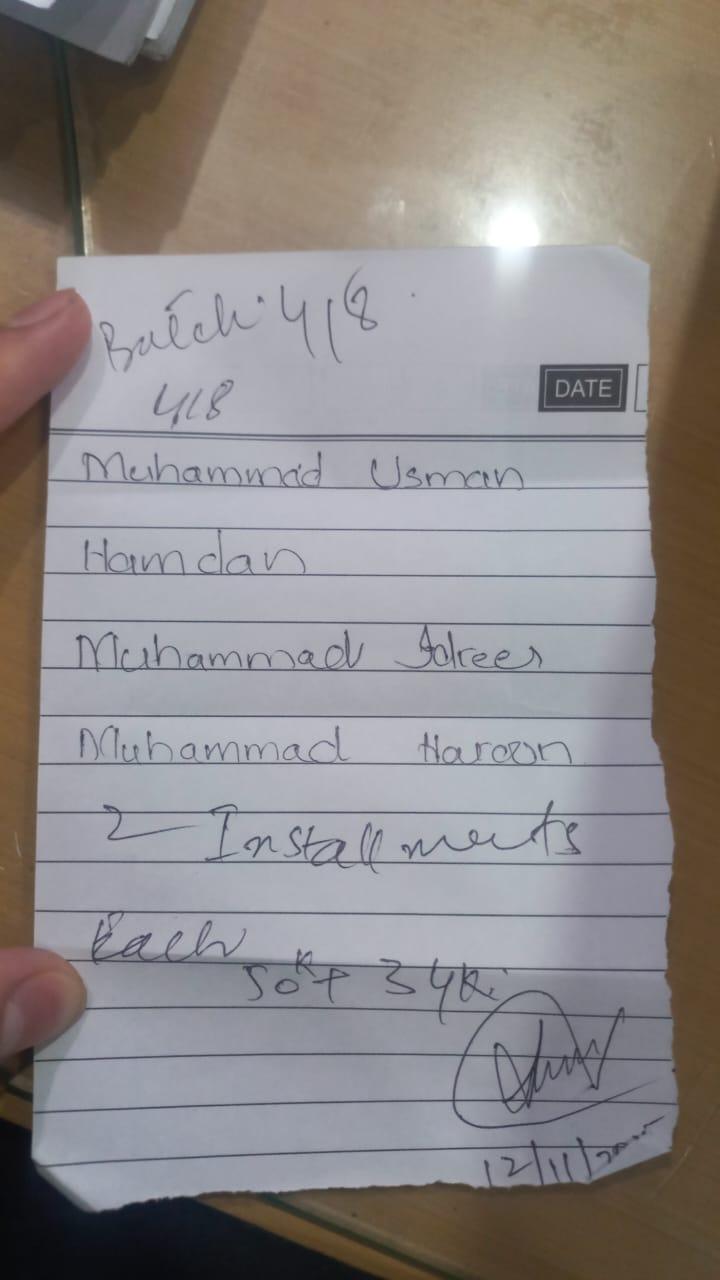 Batch 418
DATE
418
Muhammad Usman
Hamdan
Muhammad Idrees
Muhammad Haroon
2 Installments
Each
50K + 34K
12/11/2025